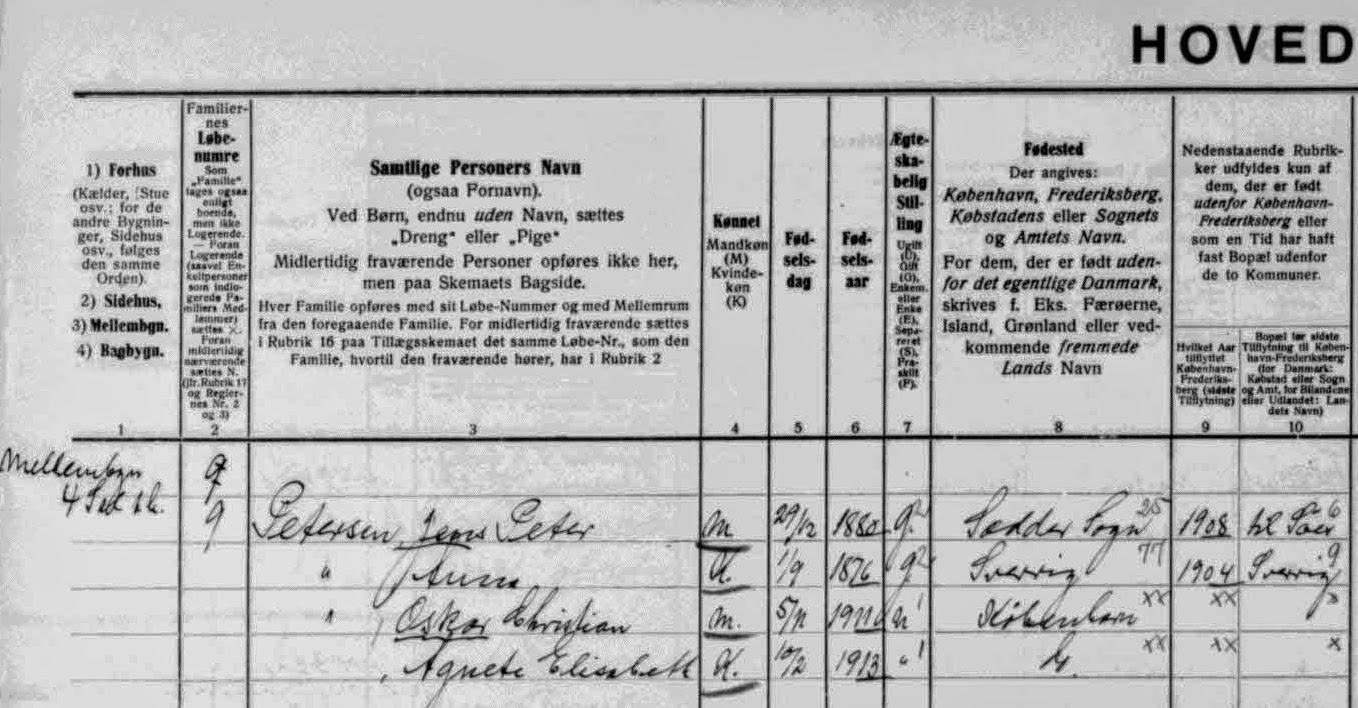 HOVED
1) Forhus
(Kælder, Stue
osv.; for de
andre Bygnin-
ger, Sidehus
osv., følges
den samme
Orden).
2) Sidehus,
3) Mellembgn.
4) Bagbygn.
1
Familier-
nes
Løbe-
numre
Som
„Familie"
tages ogsaa
enligt
boende,
men ikke
Logerende.
— Foran
Logerende
(saavel En-
keltpersoner
som indlo-
gerede Fa-
miliers Med-
lemmer)
sættes ×.
Foran
midlertidig
nærværende
sættes N.
(jfr. Rubrik 17
og Regler-
nes Nr. 2
og 3)
2
Samtlige Personers Navn
(ogsaa Fornavn).
Ved Børn, endnu uden Navn, sættes
„Dreng" eller „Pige"
Midlertidig fraværende Personer opføres ikke her,
men paa Skemaets Bagside.
Hver Familie opføres med sit Løbe-Nummer og med Mellemrum
fra den foregaaende Familie. For midlertidig fraværende sættes
i Rubrik 16 paa Tillægsskemaet det samme Løbe-Nr., som den
Familie, hvortil den fraværende hører, har i Rubrik 2
3
Kønnet
Mandkøn
(M)
Kvinde-
køn
(K)
4
Fød-
sels-
dag
5
Fød-
sels-
aar
6
Ægte-
ska-
belig
Stil-
ling
Ugift
(U),
Gift
(G),
Enkem.
eller
Enke
(E),
Sepa-
reret
(S),
Fra-
skilt
(F).
7
Fødested
Der angives:
København, Frederiksberg,
Købstadens eller Sognets
og Amtets Navn.
For dem, der er født uden-
for det egentlige Danmark,
skrives f. Eks. Færøerne,
Island, Grønland eller ved-
kommende fremmede
Lands Navn
8
Nedenstaaende Rubrik-
ker udfyldes kun af
dem, der er født
udenfor København-
Frederiksberg eller
som en Tid har haft
fast Bopæl udenfor
de to Kommuner.
Hvilket Aar
tilflyttet
København-
Frederiks-
berg (sidste
Tilflytning)
9
Bopæl før sidste
Tilflytning til Køben-
havn-Frederiksberg
(for Danmark:
Købstad eller Sogn
og Amt, for Bilandene
eller Udlandet: Lan-
dets Navn)
10
Mellembgn 9
4 Sal th.
9 Petersen Jens Peter M 29/12 1880 g 2 Sædder Sogn 25 1908 6
" Anna K. 1/9 1876 g 2 Sverrig 77 1904 Sverrig 9
" Oskar Christian M. 5/11 1911 u 1 København xx xx x
" Agnete Elisabeth K. 10/2 1913 " 1 xx xx x